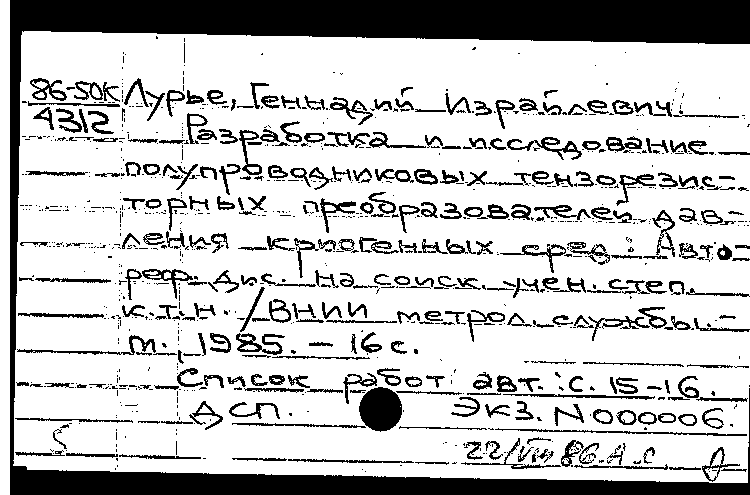 86-50К Лурье, Геннадий Израйлевич.
4312 Разработка и исследование
полупроводниковых тензорезис-
торных преобразователей дав-
ления криогенных сред : Авто-
реф. дис. на соиск. учен. степ.
к.т.н. / ВНИИ метрол. службы. -
М., 1985. - 16 с.
Список работ авт. : с. 15-16.
ДСП. Экз. N 000006.
5 22/VIII 86. А.С.